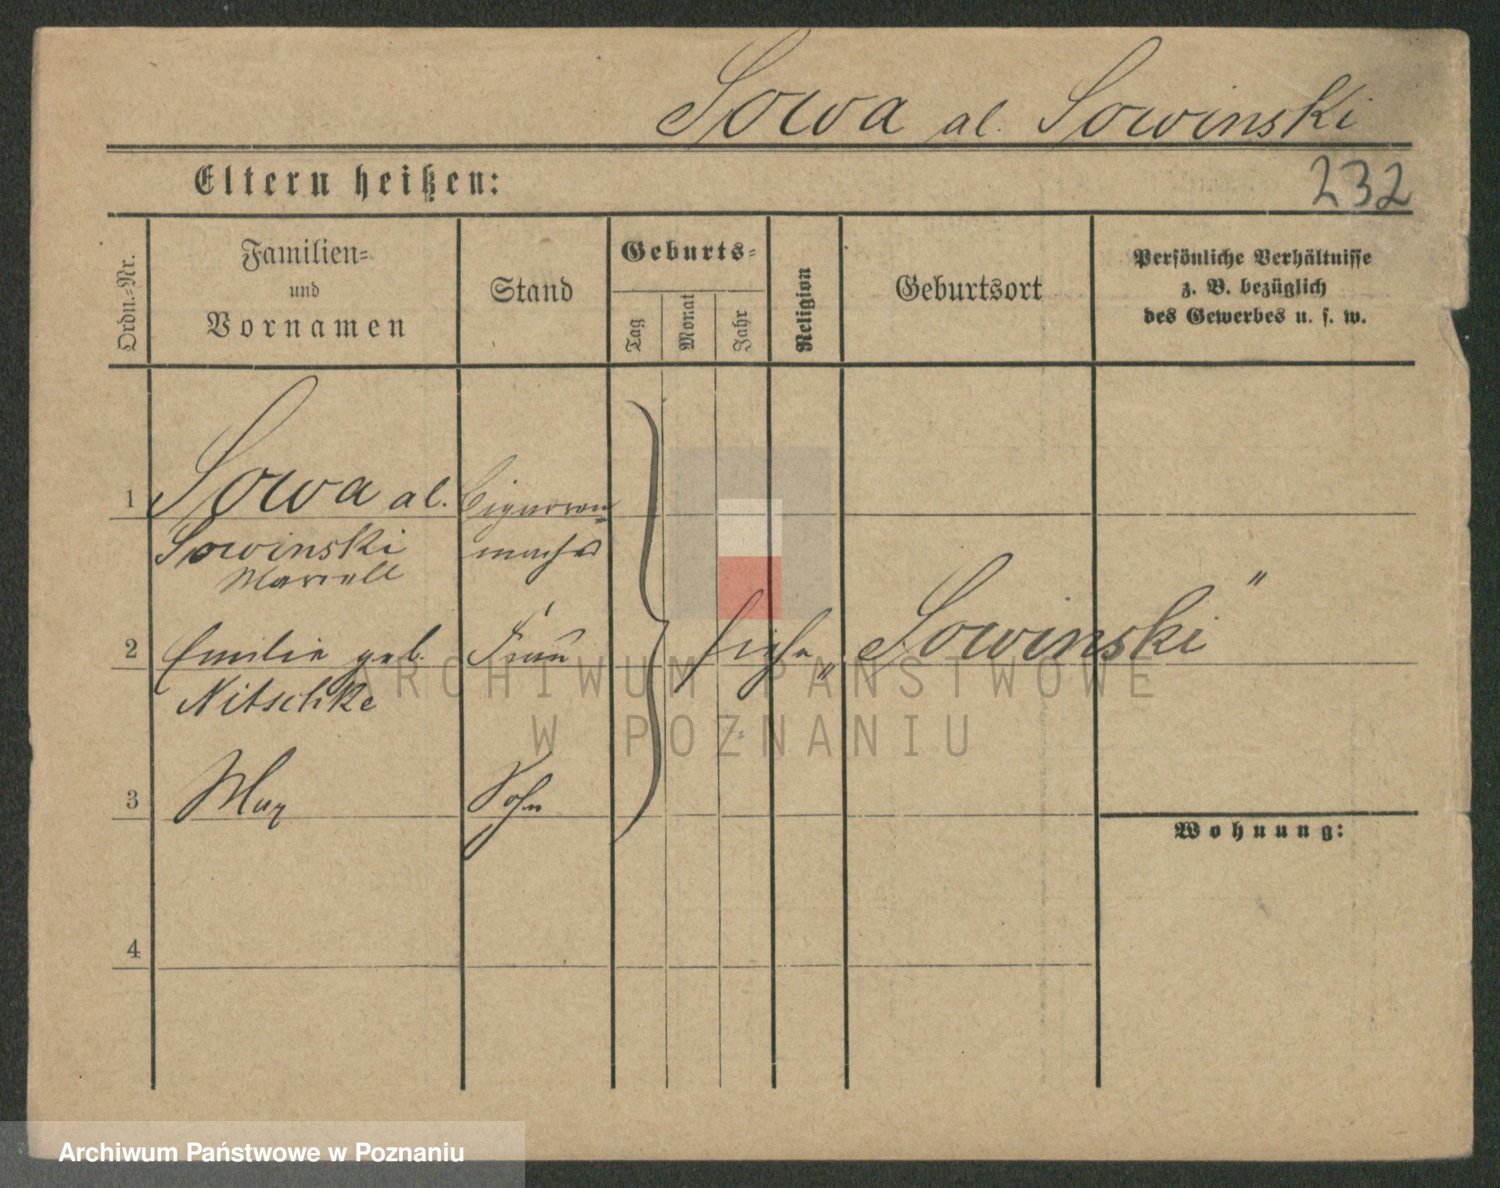 Sowa al. Sowinski
Eltern heißen:
232
Ordn.-Nr.
Familien-
und
Vornamen
Stand
Geburts-
Tag
Monat
Jahr
Religion
Geburtsort
Persönliche Verhältnisse
z. B. bezüglich
des Gewerbes u. s. w.
1 Sowa al. Cigarren-
Sowinski macher
2 Emilie geb. Frau siehe „Sowinski“
Nitschke
3 Max Sohn
Wohnung:
4
ARCHIWUM PAŃSTWOWE
W POZNANIU
Archiwum Państwowe w Poznaniu